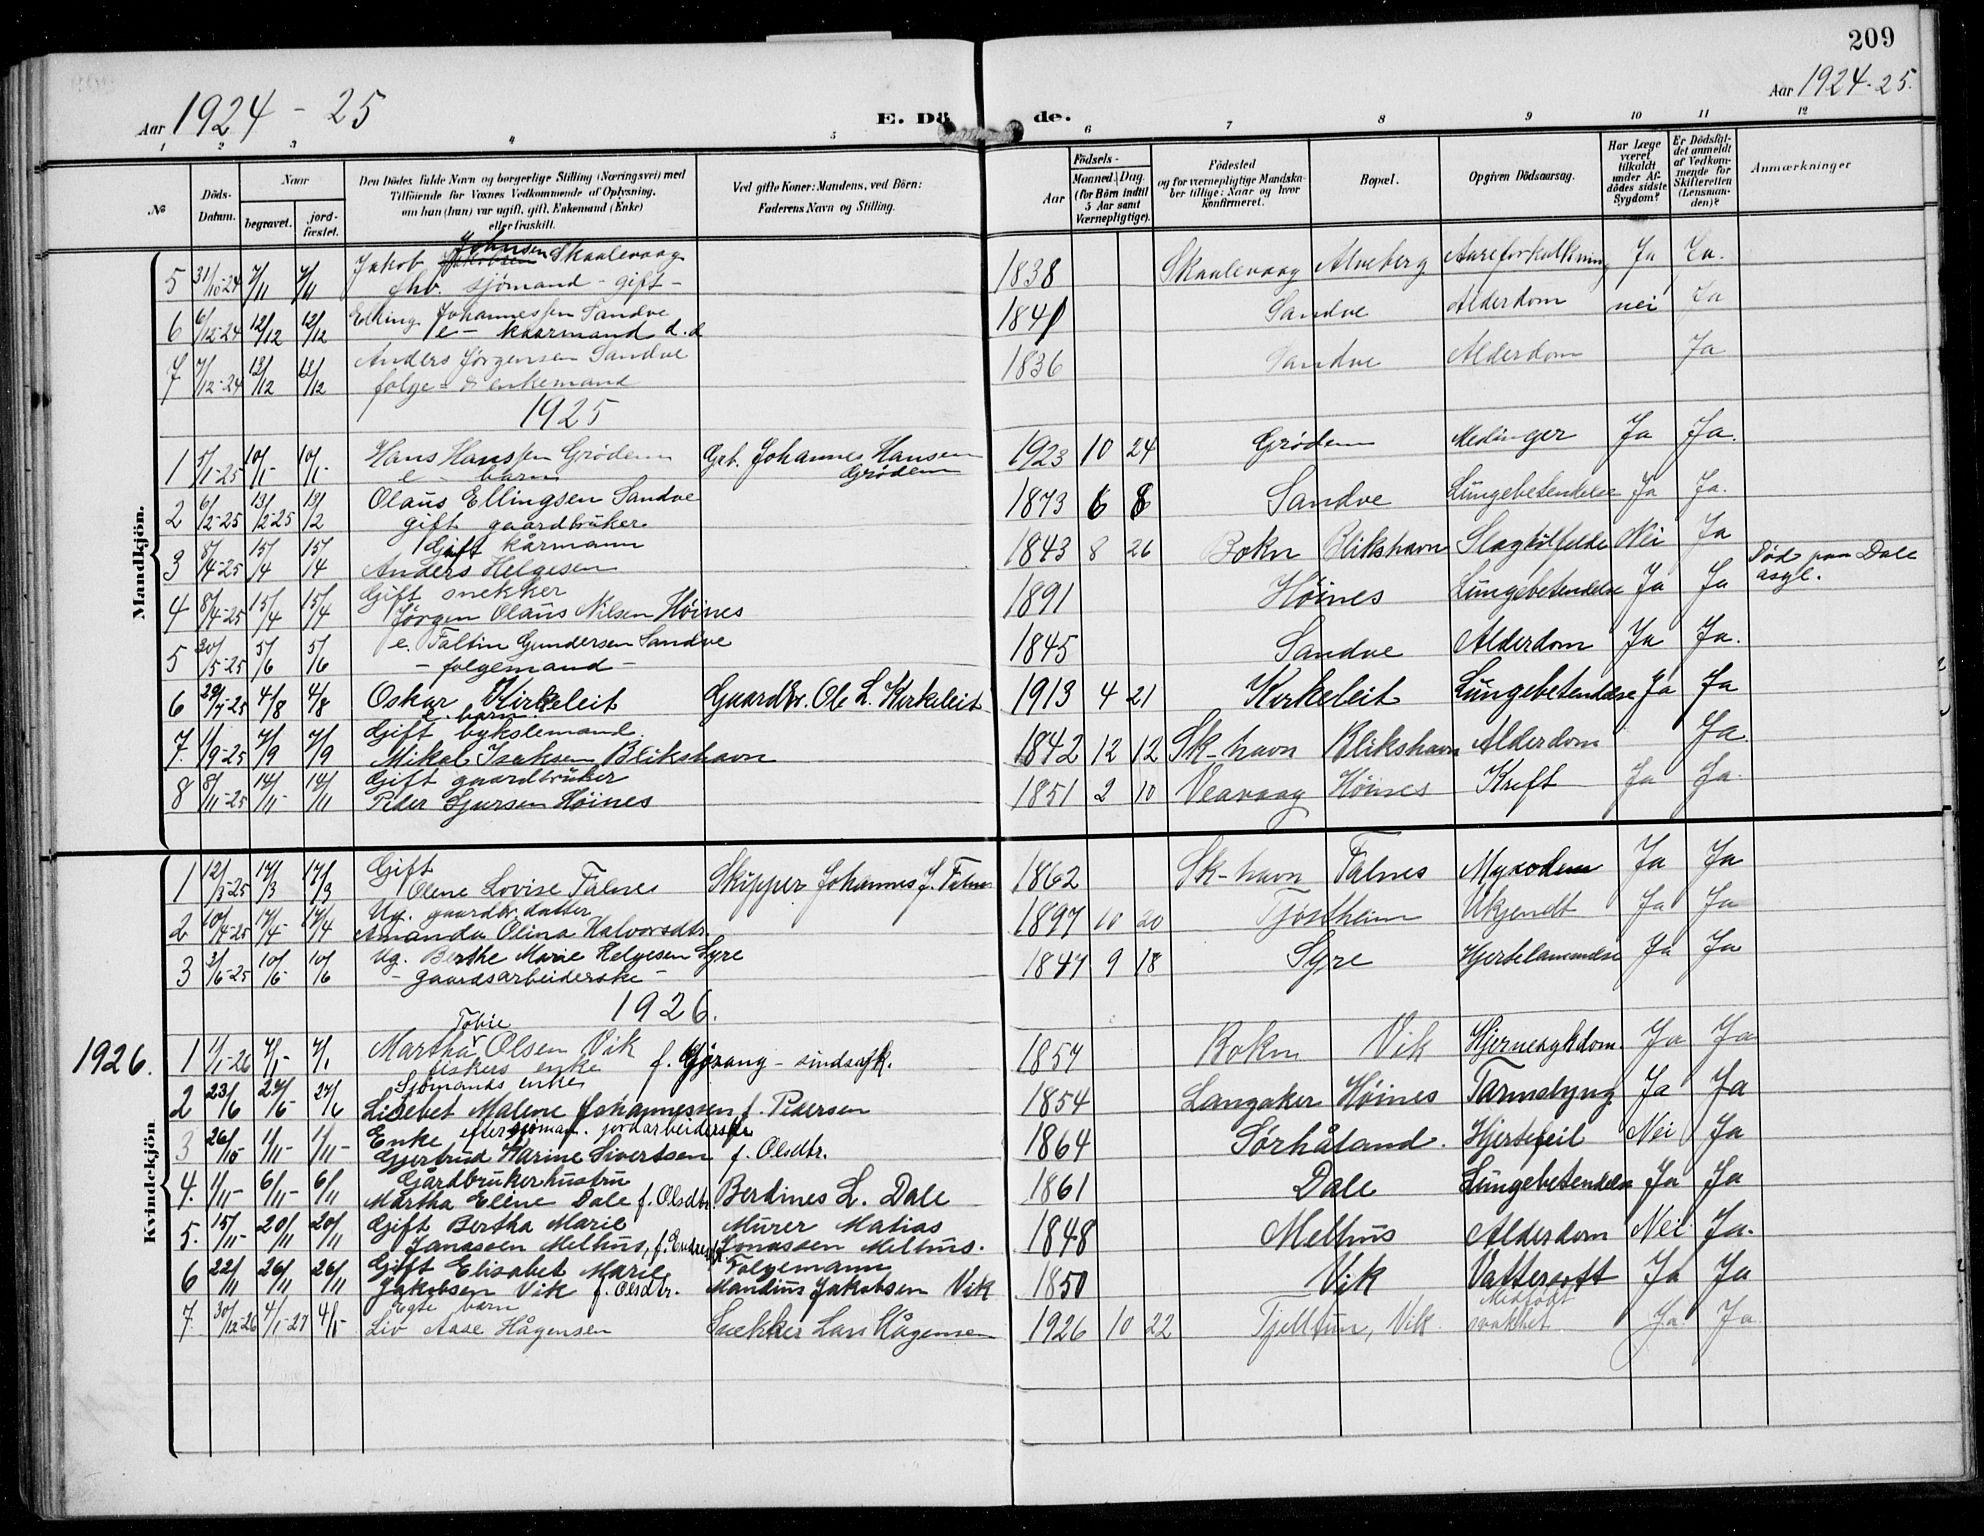 209
Aar 1924 - 25
E. Döde.
Aar 1924-25.
1 2 3 4 5 6 7 8 9 10 11 12
No
Döds-Datum.
Naar
begravet.
jordfæstet.
Den Dödes fulde Navn og borgerlige Stilling (Næringsvei) med
Tilföiende for Voxnes Vedkommende af Oplysning,
om han (hun) var ugift, gift, Enkemand (Enke)
eller fraskilt.
Ved gifte Koner: Mandens, ved Börn:
Faderens Navn og Stilling.
Födsels-
Aar
Maaned. Dag.
(for Börn indtil
5 Aar samt
Værnepligtige).
Födested
og for værnepligtige Mandska-
ber tillige: Naar og hvor
Konfirmeret.
Bopæl.
Opgiven Dödsaarsag.
Har Læge
været
tilkaldt
under Af-
dödes sidste
Sygdom?
Er Dödsfal-
det anmeldt
af Vedkom-
mende for
Skifteretten
(Lensman-
den)?
Anmærkninger
Mandkjön.
Johnsen
5 31/10-24 7/11 7/11 Jakob Jakobsen Skaalevaag 1838 Skaalevaag Alveberg Aareforkalkning Ja Ja.
fhv. sjömand - gift -
6 6/12-24 12/12 12/12 Elling Johannessen Sandve 1841 Sandve Alderdom nei Ja
e - kaarmand d.d
7 7/12-24 13/12 13/12 Anders Jörgensen Sandve 1836 Sandve Alderdom Ja
folge- & enkemand
1925
1 5/1-25 10/1- 10/1- Hans Hanssen Grødem Grb. Johannes Hansen Grødem 1923 10 24 Grødem Meslinger Ja Ja.
e - barn
2 6/2-25 13/2-25 13/2 Olaus Ellingsen Sandve 1873 6 8 Sandve Lungebetendelse Ja Ja.
gift gaardbruker
3 8/4-25 15/4 15/4 Gift kårmann 1843 8 26 Bokn Blikshavn Slagtilfelde Nei Ja
Anders Helgesen
Död paa Dale
asyl.
4 8/4-25 15/4 15/4 Gift snekker 1891 Höines Lungebetendelse Ja Ja
Jörgen Olaus Nilsen Höines
5 20/5-25 5/6 5/6 e. Taltin Gundersen Sandve 1845 Sandve Alderdom Ja Ja.
- folgemand -
6 29/7-25 4/8 4/8 Oskar Kirkeleit Gaardbr. Ole L. Kirkeleit 1913 4 21 Kirkeleit Lungebetendelse Ja Ja
e. barn
7. 1/9-25 7/9 7/9 Gift bykslemand. 1842 12 12 Sk-havn Blikshavn Alderdom Ja.
Mikal Isaksen Blikshavn
8 8/11-25 14/11- 14/11 Gift gaardbruker 1851 2 10 Veavaag Höines Kreft Ja Ja.
Peder Sjursen Höines
Kvindekjön
1 12/3-25 17/3 17/3 Gift 1862 Sk-havn Falnes Myxodem Ja Ja
Olene Lovise Falnes Skipper Johannes J. Falnes
2 10/4-25 17/4- 17/4 Ug. gaardbr. datter 1897 10 20 Tjöstheim Ukjendt Ja Ja
Amanda Olina Halvorsdtr.
3 3/6-25 10/6- 10/6 Ug. Berthe Marie Helgesen Syre 1847 9 18 Syre Hjertelammelse Ja Ja
- gaardsarbeiderske -
1926.
1926.
Tobie
1 1/1-26 7/1- 7/1 Martha Olsen Vik 1857 Bokn Vik Hjernesykdom. Ja Ja
fiskers enke f. Gjörang - sindssyk.
2 23/6 27/6- 27/6 Sjömands enke 1854 Langaker Höines Tarmslyng Ja Ja
Lisebet Malene Johannessen f. Pedersen
3 26/10 1/11- 1/11- Enke efter sjöman. jordarbeiderske 1864 Sörhåland. Hjertefeil Nei Ja
Gjertrud Karine Sivertsen f. Olsdtr.
4. 1/11- 6/11- 6/11 Gårdbrukerhustru 1861 Dale Lungebetendelse Ja Ja
Martha Eline Dale f. Olsdtr. Berdines L. Dale
5. 15/11- 20/11 20/11 Gift Bertha Marie Murer Matias 1848 Melhus Alderdom Nei Ja.
Jonassen Melhus, Jonassen Melhus.
6 22/11 26/11 26/11 Gift Elisabet Marie Folgemann 1850 Vik Vattersott Ja Ja
Jakobsen Vik f. Olsdtr. Mandius Jakobsen Vik
7. 30/12-26 4/1-27 4/1- Egte barn 1926 10 22 Tjelltun, Vik Medfødt svakhet Ja. Ja
Liv Aase Hågensen Snekker Lars Hågensen